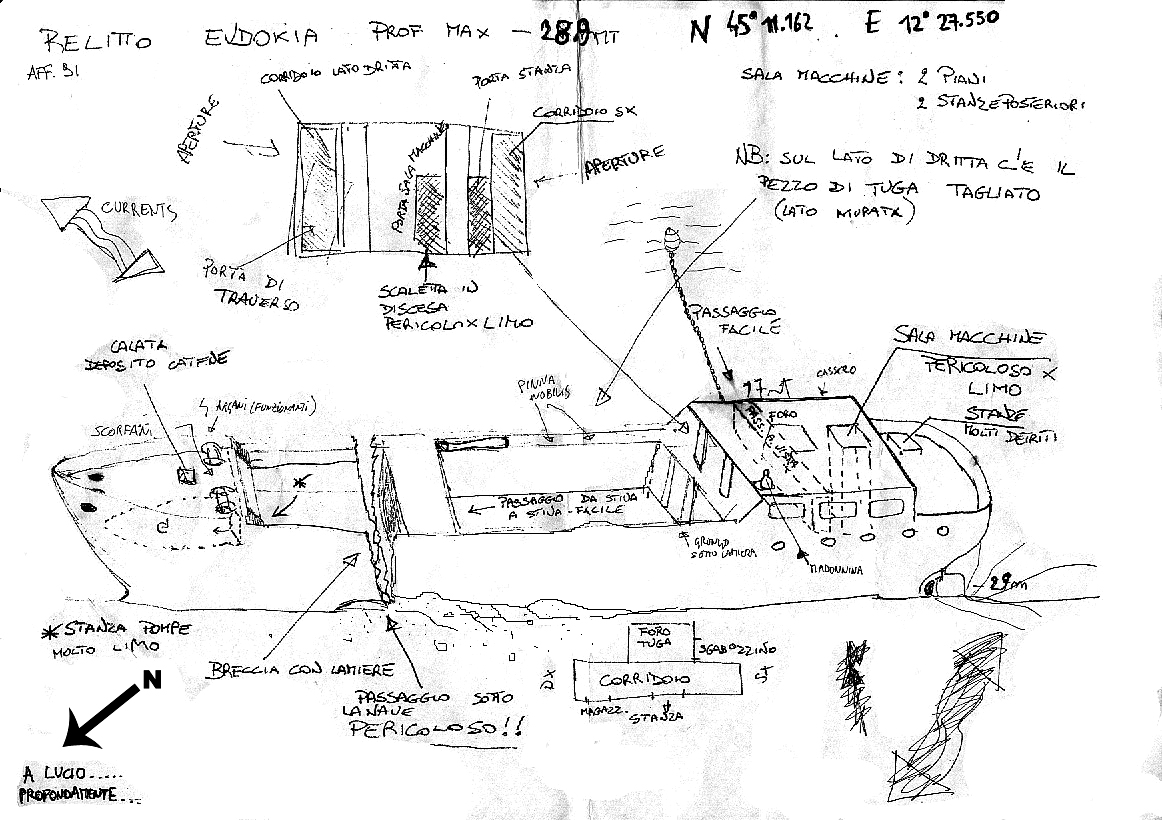 RELITTO EVDOKIA PROF MAX - MT
N 45° 11.162 . E 12° 27.550
AFF. 91
CORRIDOIO LATO DRITTA
PORTA STANZA
CORRIDOIO SX
APERTURE
APERTURE
PORTA SALA MACCHINE
SALA MACCHINE: 2 PIANI
2 STANZE POSTERIORI
NB: SUL LATO DI DRITTA C'E IL
PEZZO DI TUGA TAGLIATO
(LATO MURATA)
CURRENTS
PORTA DI
TRAVERSO
SCALETTA IN
DISCESA
PERICOLO X LIMO
PASSAGGIO
FACILE
SALA MACCHINE
PERICOLOSO X
LIMO
STANZE
MOLTI DETRITI
CALATA
DEPOSITO CATENE
ARGANI (FUNZIONANTI)
SCORFANI
PINNA
NOBILIS
17
CASSERO
FORO
PASSAGGIO DA STIVA
A STIVA - FACILE
GRONGO
SOTTO LAMIERA
MADONNINA
- 29m
* STANZA POMPE
MOLTO LIMO
BRECCIA CON LAMIERE
PASSAGGIO SOTTO
LA NAVE
PERICOLOSO!!
FORO
TUGA
SGABUZZINO
DX
CORRIDOIO
SX
MAGAZZ.
STANZA
N
A LUCIO.....
PROFONDAMENTE...